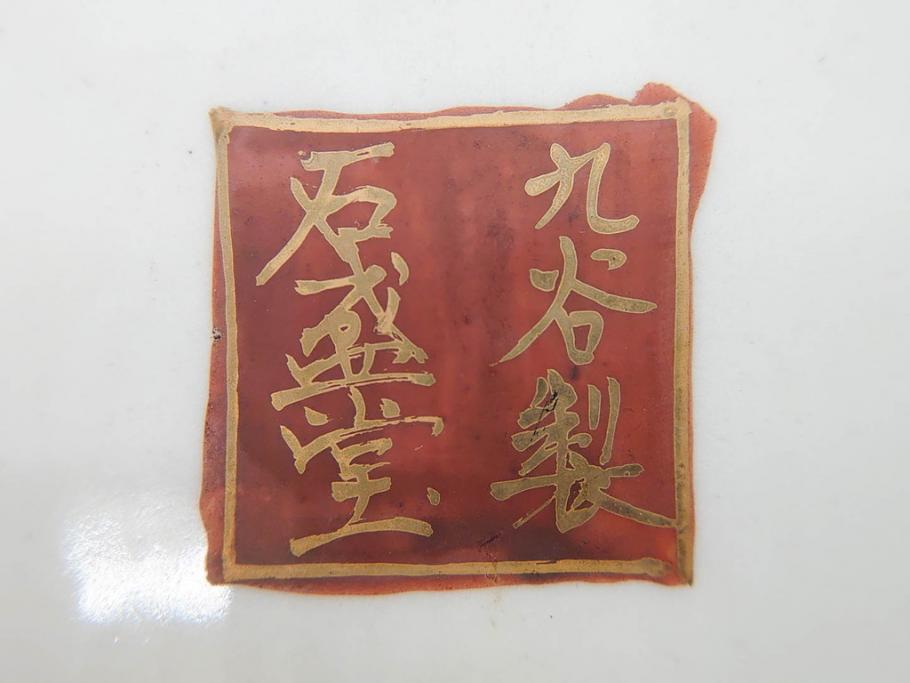 九谷製
石盛堂